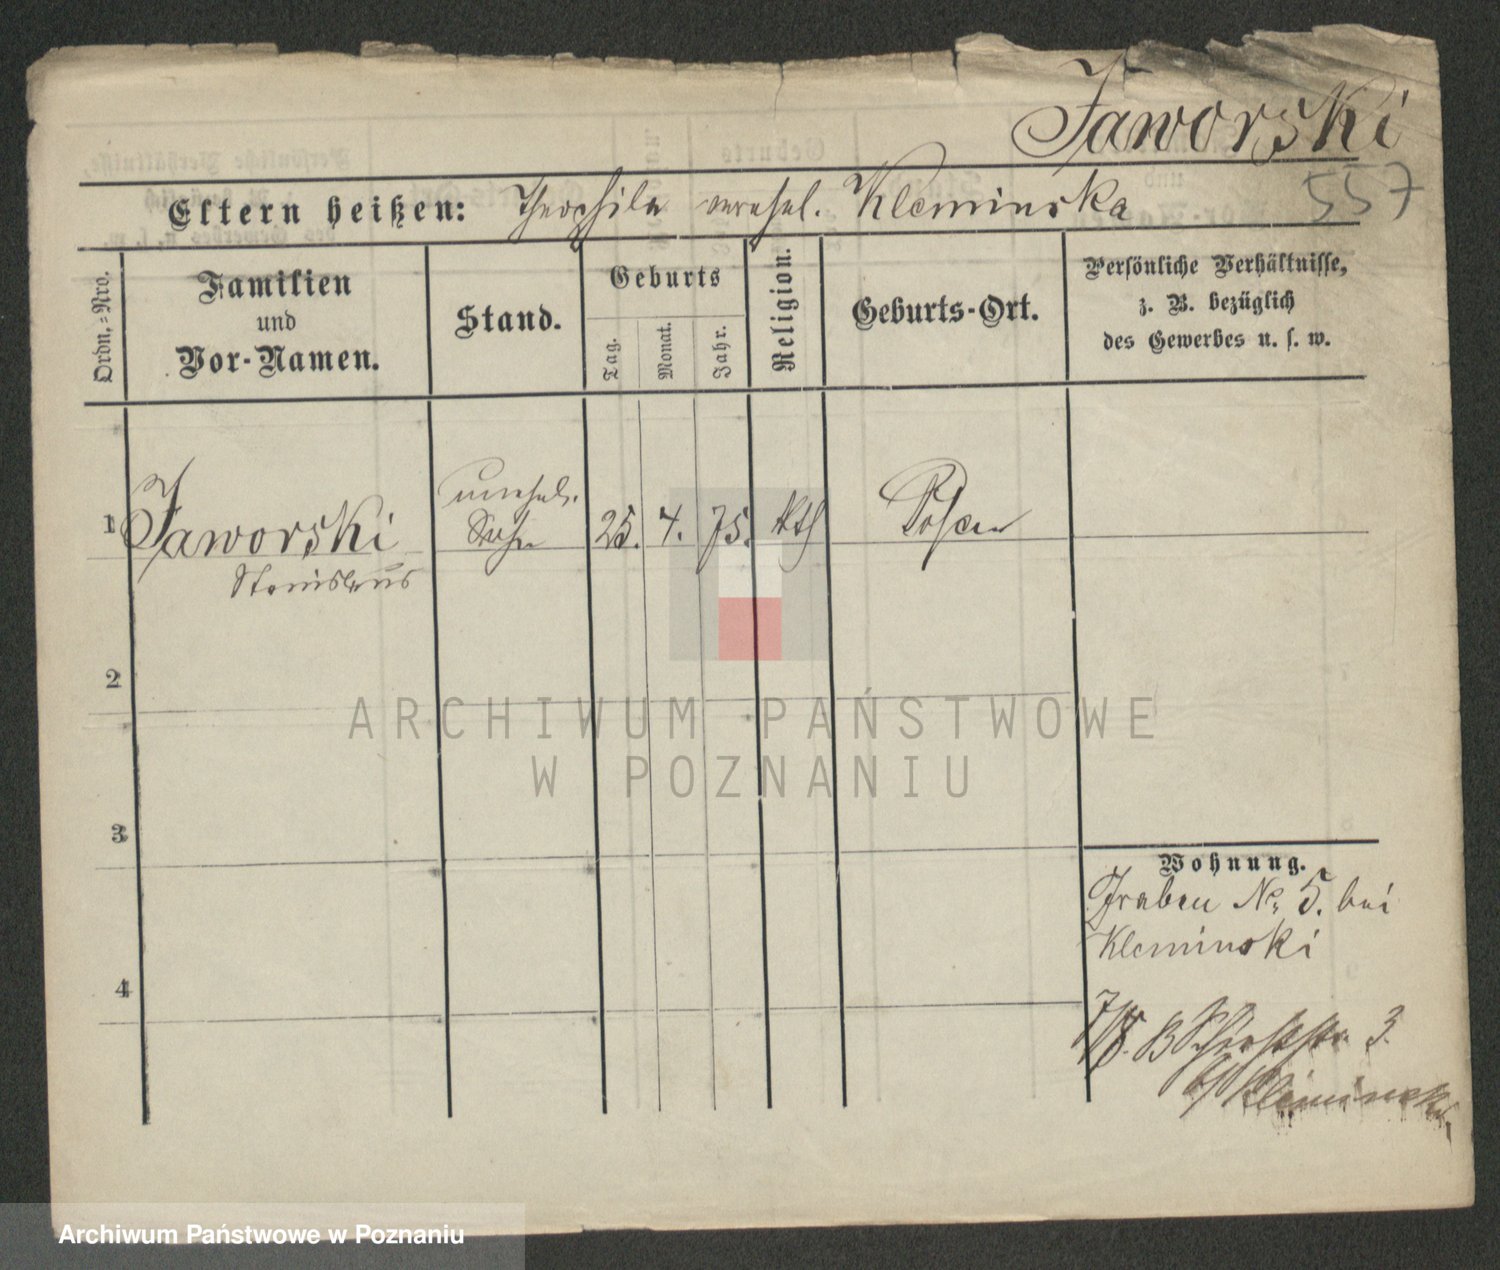 Jaworski
557
Eltern heißen: Theophila verehel. Kleminska
Ordn.-Nro.
Familien
und
Vor-Namen.
Stand.
Geburts
Tag.
Monat.
Jahr.
Religion.
Geburts-Ort.
Persönliche Verhältnisse,
z. B. bezüglich
des Gewerbes u. s. w.
1
Jaworski
Stanislaus
unehel.
Sohn
25. 4. 75. kth Posen
2
3
4
Wohnung.
Graben No 5. bei
Kleminski
7/8. B 3.
b/ Kleminski
ARCHIWUM PAŃSTWOWE
W POZNANIU
Archiwum Państwowe w Poznaniu